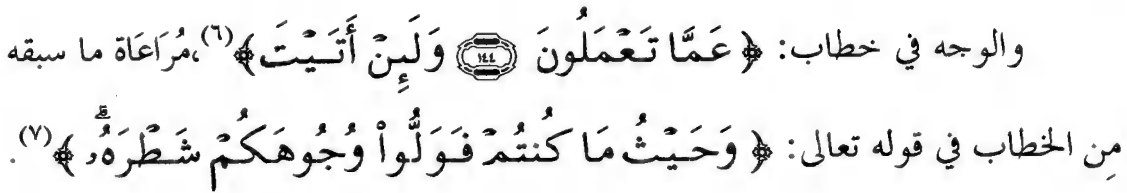 والوجه في خطاب: ﴿ عَمَّا تَعْمَلُونَ ١٤٤ وَلَئِنْ أَتَيْتَ﴾(٦)، مُرَاعَاة ما سبقه
مِن الخطاب في قوله تعالى: ﴿ وَحَيْثُ مَا كُنتُمْ فَوَلُّواْ وُجُوهَكُمْ شَطْرَهُۥۗ ﴾(٧).